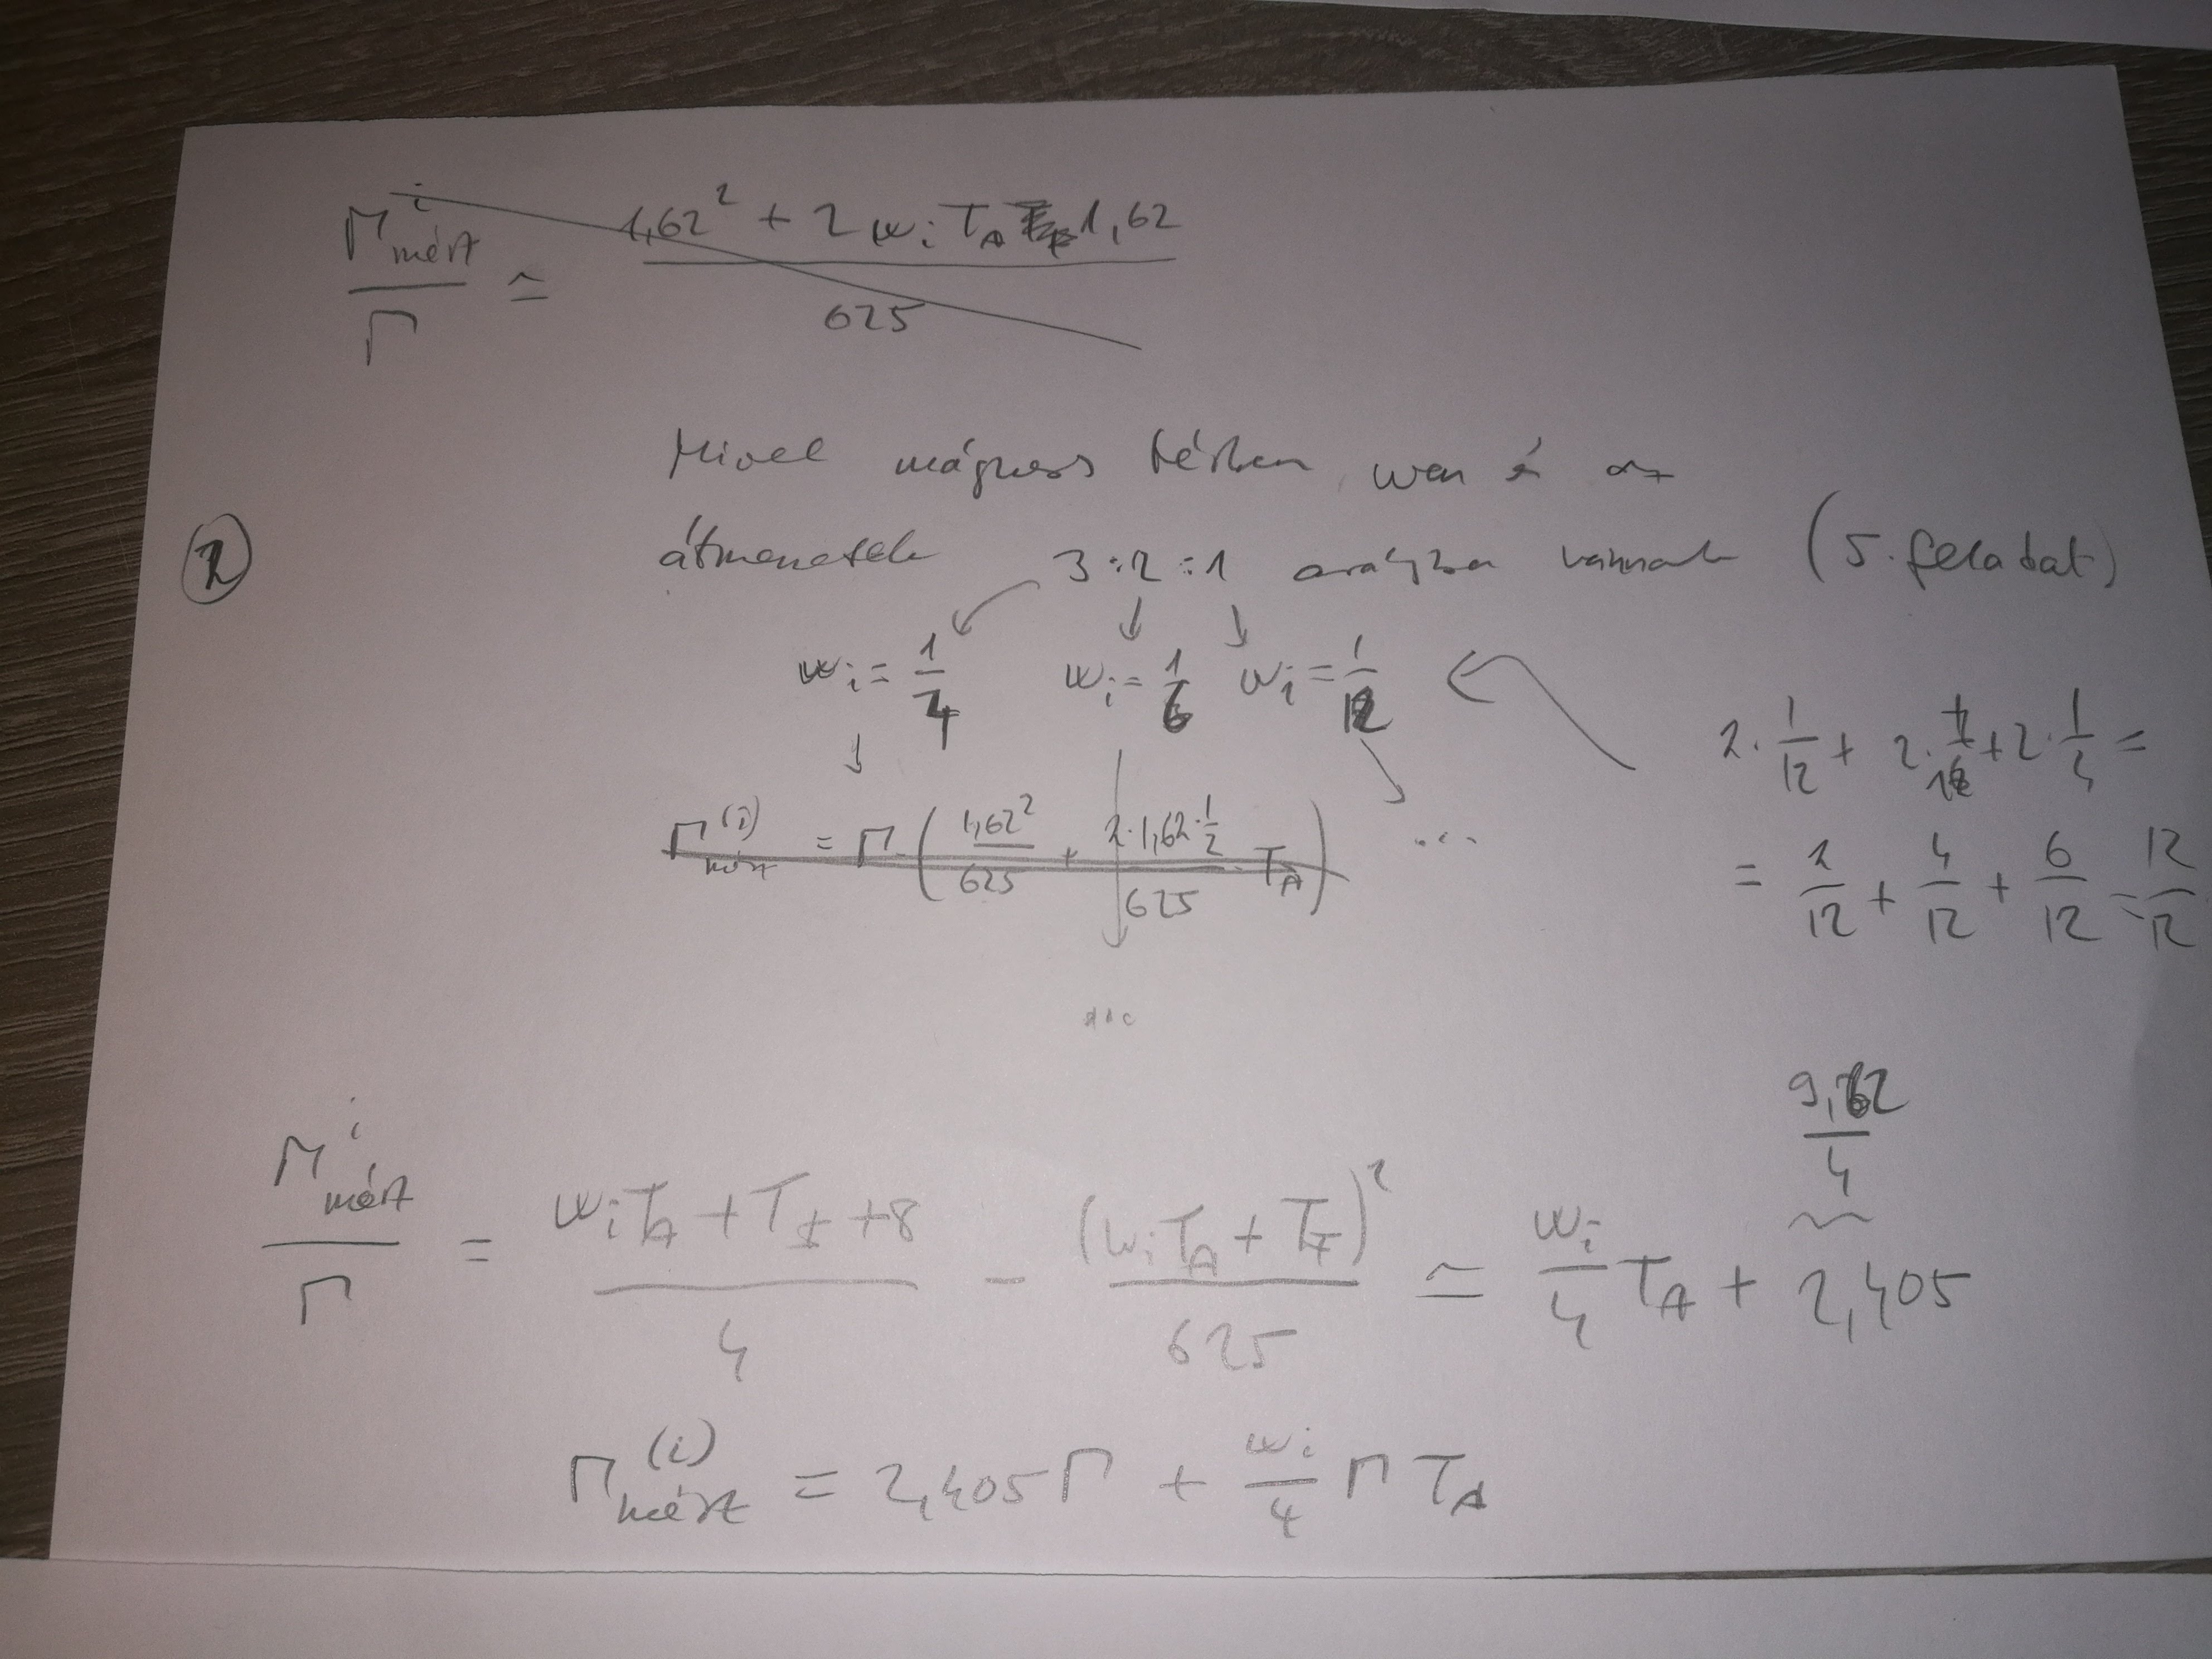 Γ^i_mért / Γ ≃ (1,62² + 2 w_i T_A 1,62) / 625
Mivel mágneses térben van és az
② átmenetek 3:2:1 arányban vannak (5. feladat)
w_i = 1/4   w_i = 1/6   w_i = 1/12
2·1/12 + 2·1/6 + 2·1/4 =
= 2/12 + 4/12 + 6/12 = 12/12
Γ^(i)_mért = Γ·(1,62²/625 + (2·1,62·1/2)/625 · T_A) ...
...
9,62/4
Γ^i_mért / Γ = (w_i T_A + T_f + 8)/4 − (w_i T_A + T_f)²/625 ≃ w_i/4 T_A + 2,405
Γ^(i)_mért = 2,405 Γ + w_i/4 Γ T_A